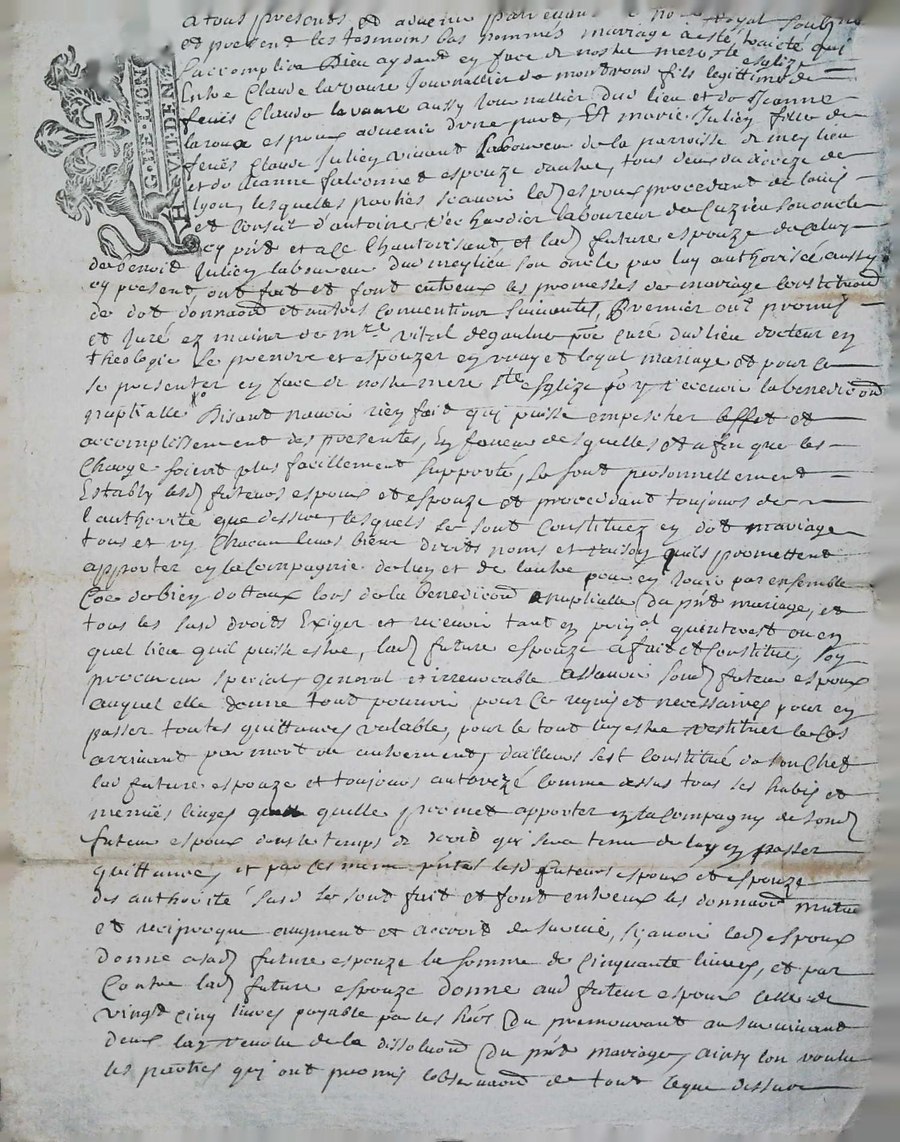 G. DE LION
HVIT. DEN
A tous presents et advenir par devant le no royal soubz
et present les tesmoins bas nommes mariage a esté traicté qui
saccomplira Dieu aydant en face de nostre mere ste esglize
Entre Claude lavaure Journallier de montrond fils legittime de
feuës Claude lavaure aussy Journallier dud lieu et de Jeanne
laroux espoux advenir dune part, Et marie Juliey fille de
feuës Claude Juliey vivant laboureur de la parroisse de meylieu
et de Jeanne falconnet espouze dautre, tous deux du dioceze de
lyon, lesquelles parties sçavoir led espoux procedant de ladvis
et Conseil d'antoine laboureur de Cuzieu son oncle
cy pnt et ace Lhautorisant et lad future espouze de celuy
de benoist Juliey laboureur dud meylieu son oncle par luy authorisée aussy
cy present, ont fait et font entreux les promesses de mariage Constituaon
de dot donnaon et autres Conventions suivantes, Premier ont promis
et Juré ez mains de mre vitial degaulne pbre curé dud lieu docteur en
theologie Se prendre et espouzer en vray et loyal mariage et pour ce
se presenter en face de nostre mere ste esglize pour y recevoir la benediction
nuptialle Disant navoir rien fait qui puisse empescher leffet et
accomplissement des presentes, En faveur desquelles et afin que les
Charge soient plus facillement supporté, Se sont personnellement
Estably lesd futeurs espoux et espouze et procedant toujours de
l'authorité que dessus, lesquels se sont Constituez en dot mariage
tous et un Chacun leurs biens droits noms et raison quils promettent
apporter en la Compagnie de lun et de lautre pour en Jouir par ensemble
Coe de bien dottaux lors de la benediction nuptialle du pnt mariage, et
tous les susd droits Exiger et recevoir tant en prinpal quinterest ou en
quel lieu quil puisse estre, lad future espouze a fait et Constitué, son
procureur special general et irrevocable assavoir sond futeur espoux
auquel elle donne tout pouvoir pour ce requis et necessaires pour en
passer toutes quittances valable, pour le tout luy estre restituer le Cas
arrivant par mort ou autrement, dailleurs sest Constitué de son Chef
lad future espouze et toujours autorizé Comme dessus tous ses habis et
menuës linges quelle promet apporter en la Compagny de sond
futeur espoux dans le temps de droit qui sera tenu de luy en passer
quittances, et par ces meme pntes lesd futeurs espoux et espouze
des authorité susd se sont fait et font entreux les donnaon mutue
et reciproque augment et accroit de survie, sçavoir led espoux
donne a sad future espouze la somme de Cinquante livres, et par
Contre lad future espouze donne aud futeur espoux celle de
vingt cinq livres payable par les hoirs du premourant au survivant
deux lan revolu de la dissoluon du pnt mariage, ainsy lon voulu
les parties qui ont promis lobservaon de tout ceque dessus